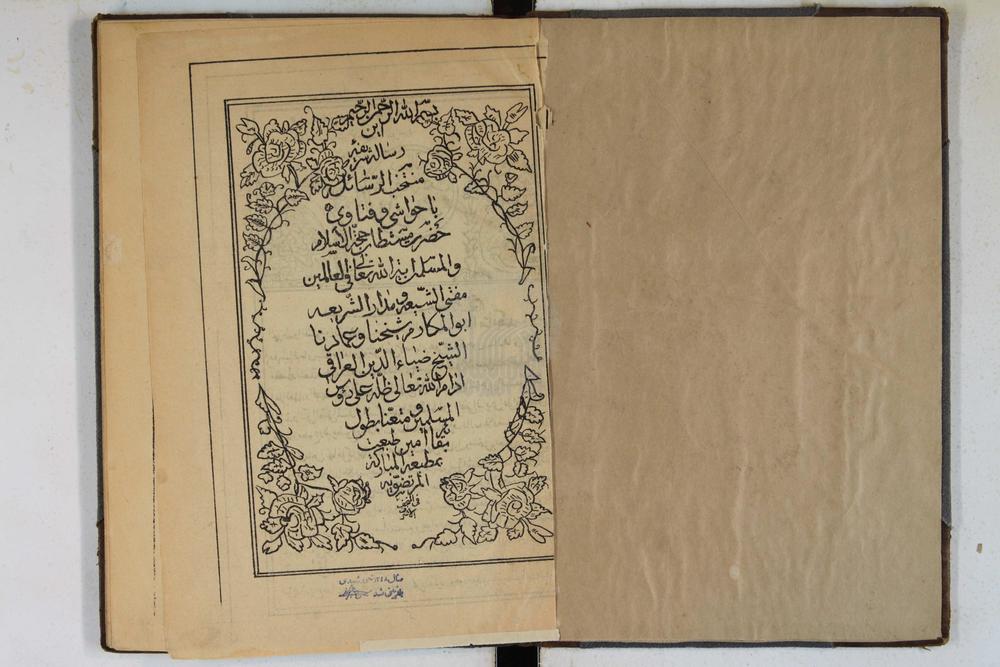 بسم الله الرحمن الرحیم
این
رساله شریفه
منتخب الرسائل
با حواشی و فتاوی
حضرت مستطاب حجة الاسلام
والمسلمین آیة الله تعالی فی العالمین
مفتی الشیعه و مدار الشریعه
ابوالمکارم شیخنا و عمادنا
الشیخ ضیاء الدین العراقی
ادام الله تعالی ظله علی رؤس
المسلمین و متعنا بطول
بقائه آمین طبعت
بمطبعة المبارکة
المرتضویه
فی النجف
الاشرف
سال ۱۳۴۸ خورشیدی
بازبینی شد